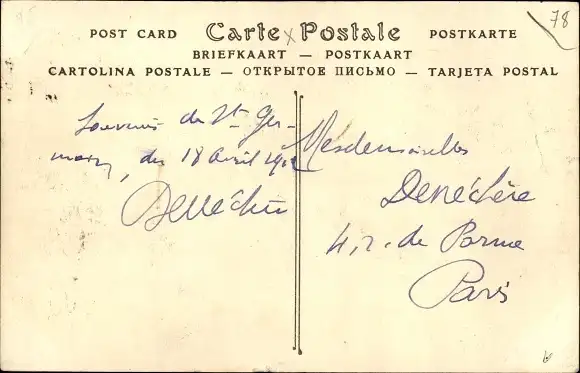 78
POST CARD Carte Postale POSTKARTE
BRIEFKAART — POSTKAART
CARTOLINA POSTALE — ОТКРЫТОЕ ПИСЬМО — TARJETA POSTAL
Souvenir de St Ger-
main, du 18 avril
Denéchère
Mesdemoiselles
Denéchère
4, r. de Parme
Paris